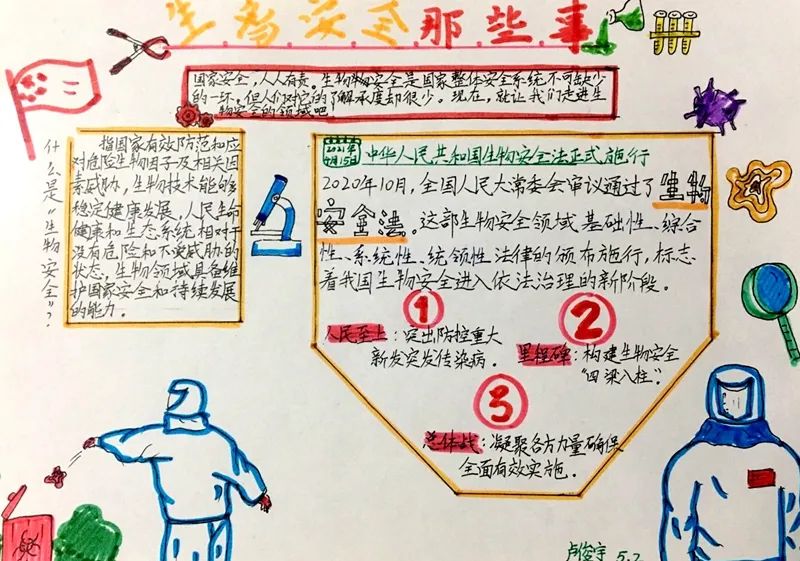 生物安全那些事
国家安全,人人有责。生物物安全是国家整体安全系统不可缺少
的一环。但人们对它的了解承度却很少。现在,就让我们走进生
物安全的领域吧
什么是“生物安全”?
指国家有效防范和应
对危险生物因子及相关因
素威胁,生物技术能够
稳定健康发展,人民生命
健康和生态系统相对于
没有危险和不受威胁的
状态,生物领域具备维
护国家安全和持续发展
的能力。
2021年
4月15日
中华人民共和国生物安全法正式施行
2020年10月,全国人民大常委会审议通过了生物
安全法。这部生物安全领域基础性、综合
性、系统性、统领性法律的颁布施行,标志
着我国生物安全进入依法治理的新阶段。
1
人民至上:突出防控重大
新发突发传染病。
2
里程碑:构建生物安全
“四梁八柱”。
3
总体战:凝聚各方力量确保
全面有效实施。
卢俊宇 5.2